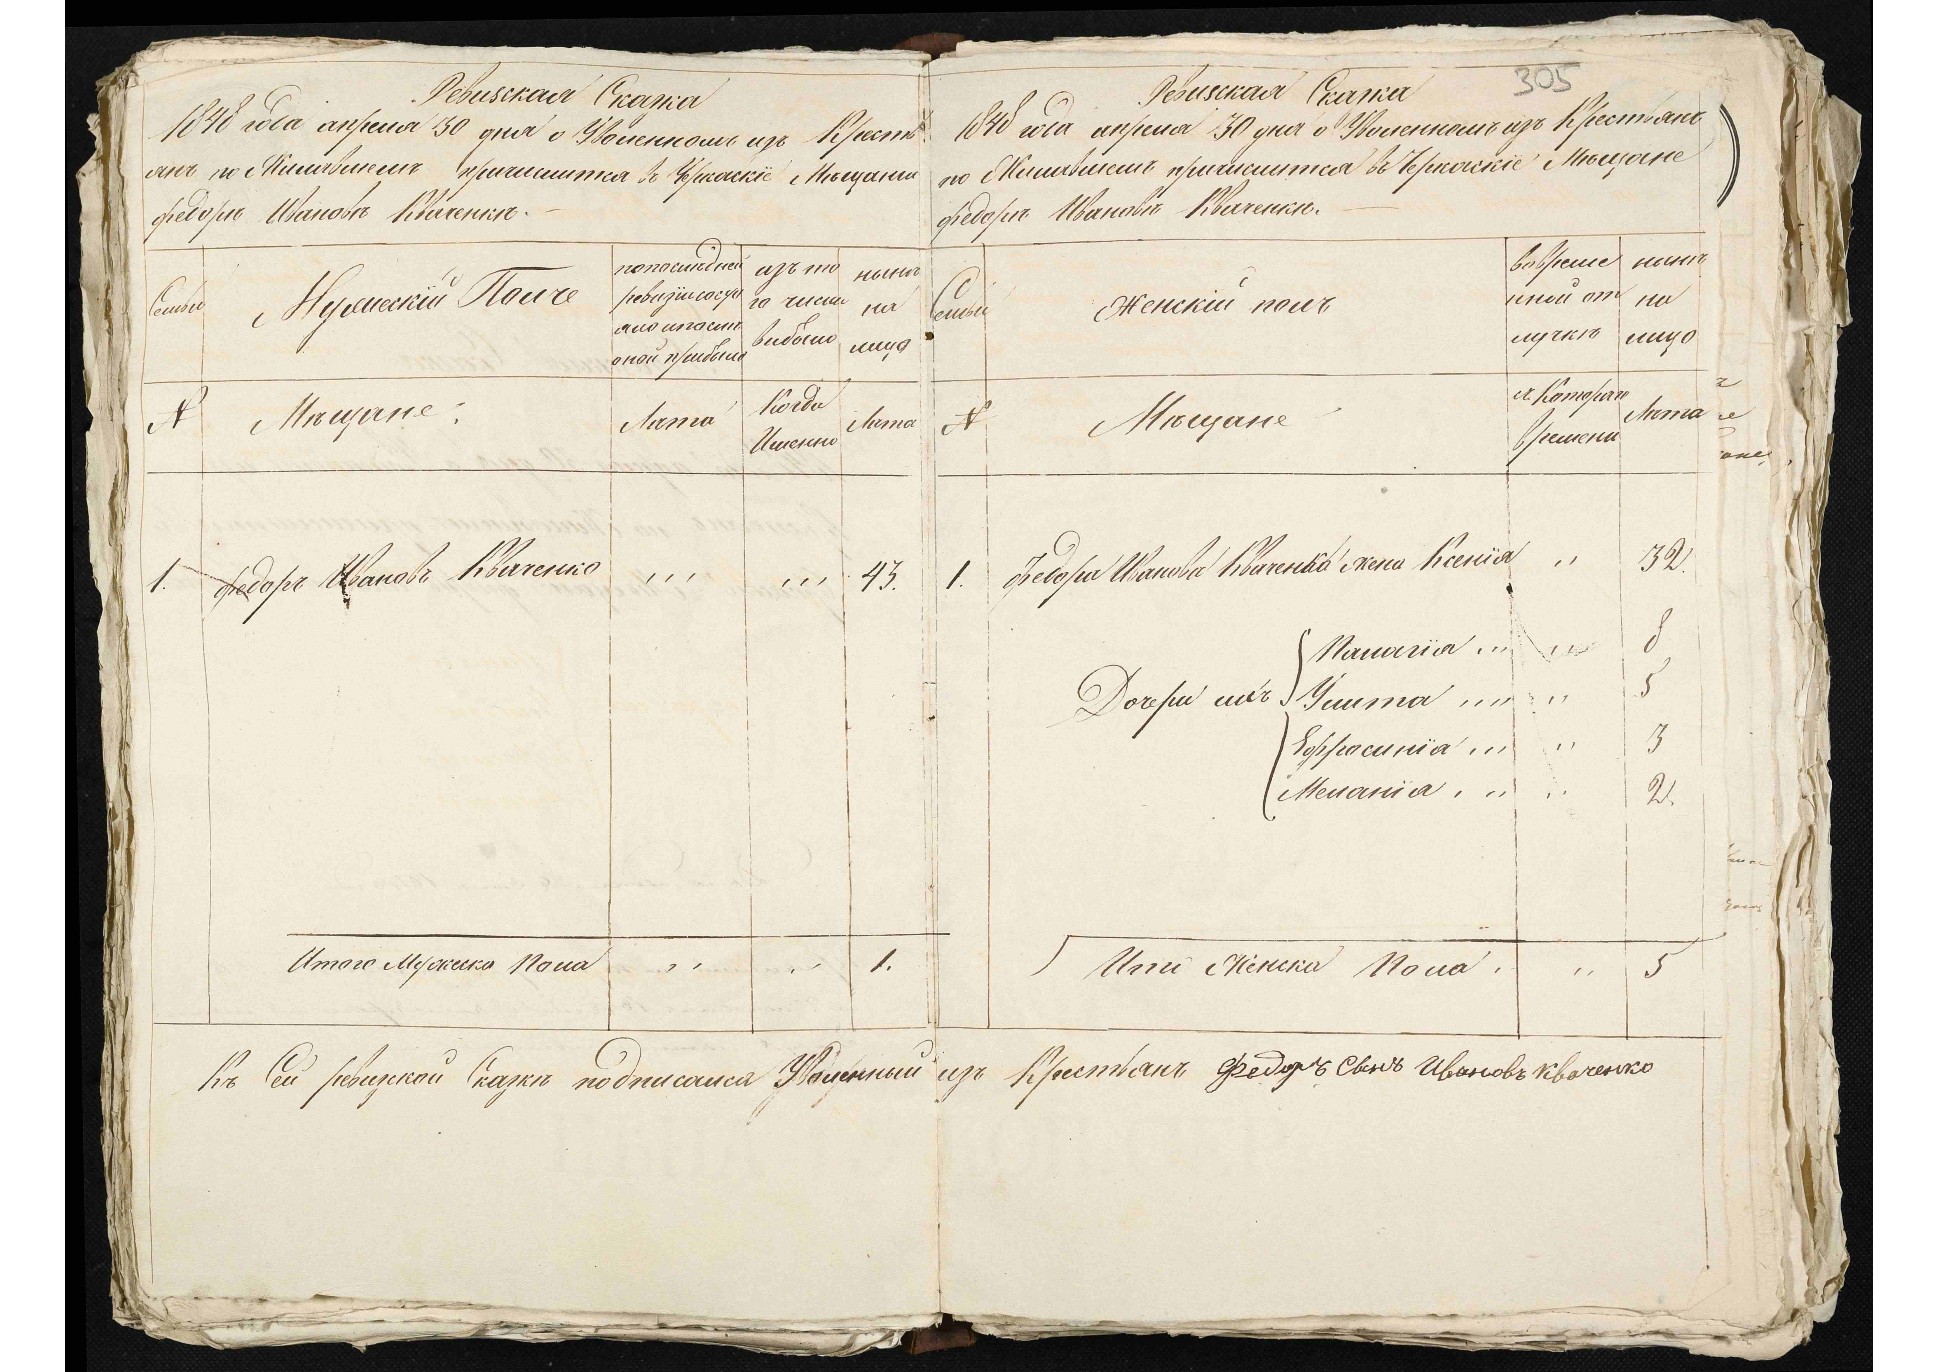 305
Ревизская Сказка
1848 года апреля 30 дня о Уволенномъ изъ Кресть
янъ по причислится въ Черкаскіе Мѣщани
Федорѣ Ивановѣ Кваченкѣ.
Семьи
Мужескій Полъ
попоследней
ревизіи состо
яло ипослѣ
оной прибыло
изъ то
го числа
выбыло
нынѣ
на
лицо
№
Мѣщане:
Лѣта
Когда
Именно
Лѣта
1. Федоръ Ивановъ Кваченко ,,, ,,, 43.
Итого Мужеска Пола ,, ,, 1.
Ревизская Сказка
1848 года апреля 30 дня о Уволенномъ изъ Крестьянъ
по причислится въ Черкаскіе Мѣщане
Федорѣ Ивановѣ Кваченкѣ.
Семьи
Женскій полъ
вовреме
нной от
лучкѣ
нынѣ
на
лицо
№
Мѣщане
съ Котораго
времени
Лѣта
1. Федора Иванова Кваченка жена Ксенія ,, 32.
Палагія ,,, ,, 8
Дочери ихъ
Улита ,,,, ,, 5
Ефросинія ,,, ,, 3
Меланія , ,, ,, 2.
Итого Женска Пола , ,, 5
Къ Сей ревизской Сказкѣ подписался Уволенный изъ Крестьянъ Федоръ Сынъ Ивановъ Кваченко